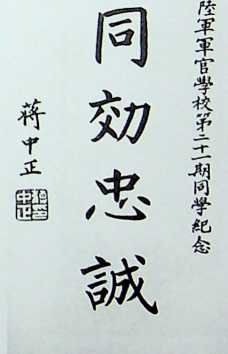 陸軍軍官學校第二十一期同學紀念
同効忠誠
蔣中正